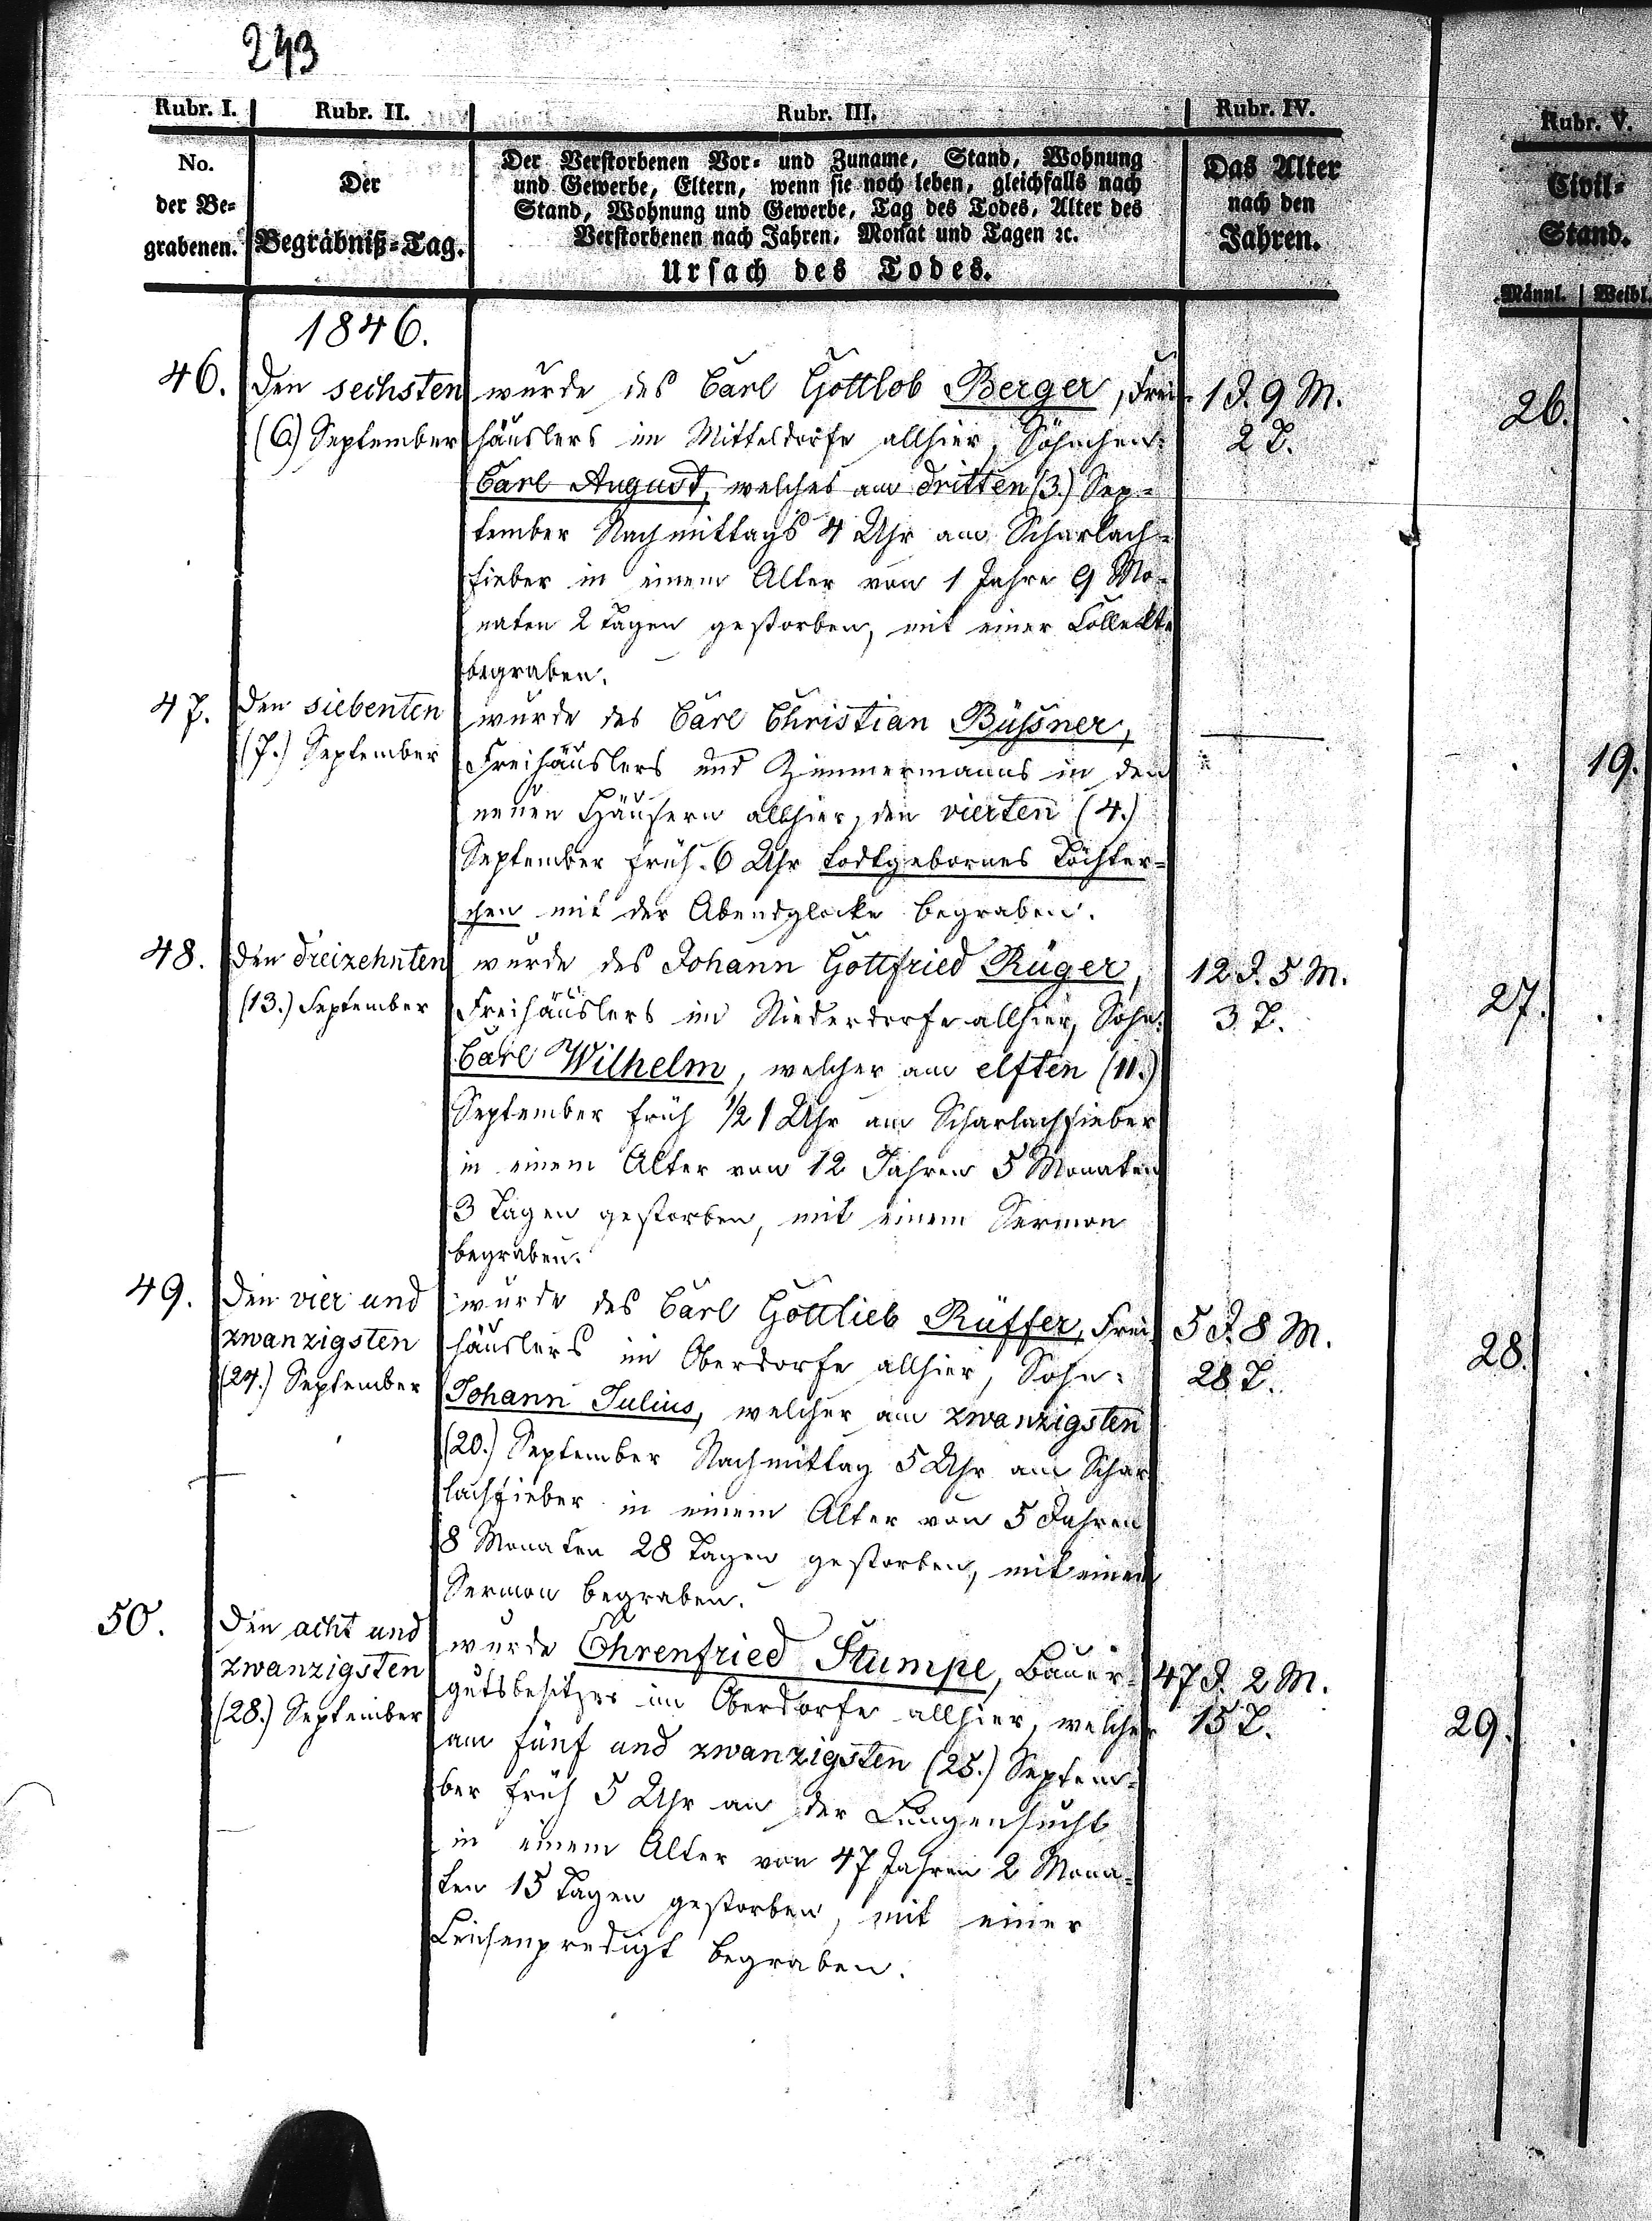 243
Rubr. I. Rubr. II. Rubr. III. Rubr. IV. Rubr. V.
No. der Be- grabenen.
Der Begräbniß-Tag.
Der Verstorbenen Vor- und Zuname, Stand, Wohnung
und Gewerbe, Eltern, wenn sie noch leben, gleichfalls nach
Stand, Wohnung und Gewerbe, Tag des Todes, Alter des
Verstorbenen nach Jahren, Monat und Tagen ꝛc.
Ursach des Todes.
Das Alter
nach den
Jahren.
Civil-
Stand.
Männl. Weibl.
1846.
46. Den sechsten
(6.) September
wurde des Carl Gottlob Berger, Frei-
häuslers im Mitteldorfe allhier, Söhnchen:
Carl August, welches am dritten (3.) Sep-
tember Nachmittags 4 Uhr am Scharlach-
fieber in einem Alter von 1 Jahre 9 Mo-
naten 2 Tagen gestorben, mit einer Collekte
begraben.
1 J. 9 M.
2 T.
26.
47. Den siebenten
(7.) September
wurde des Carl Christian Büßner,
Freihäuslers und Zimmermanns in den
neuen Häusern allhier, den vierten (4.)
September früh 6 Uhr todtgebornes Töchter-
chen mit der Abendglocke begraben.
19.
48. Den dreizehnten
(13.) September
wurde des Johann Gottfried Rüger,
Freihäuslers im Niederdorfe allhier, Sohn:
Carl Wilhelm, welcher am elften (11.)
September früh ½ 1 Uhr am Scharlachfieber
in einem Alter von 12 Jahren 5 Monaten
3 Tagen gestorben, mit einem Sermon
begraben.
12 J. 5 M.
3 T.
27.
49. Den vier und
zwanzigsten
(24.) September
wurde des Carl Gottlieb Rüffer, Frei-
häuslers im Oberdorfe allhier, Sohn:
Johann Julius, welcher am zwanzigsten
(20.) September Nachmittag 5 Uhr am Schar
lachfieber in einem Alter von 5 Jahren
8 Monaten 28 Tagen gestorben, mit einem
Sermon begraben.
5 J. 8 M.
28 T.
28.
50. Den acht und
zwanzigsten
(28.) September
wurde Ehrenfried Stumpe, Bauer-
gutsbesitzer im Oberdorfe allhier, welcher
am fünf und zwanzigsten (25.) Septem-
ber früh 5 Uhr an der Lungensucht
in einem Alter von 47 Jahren 2 Mona-
ten 15 Tagen gestorben, mit einer
Leichenpredigt begraben.
47 J. 2 M.
15 T.
29.